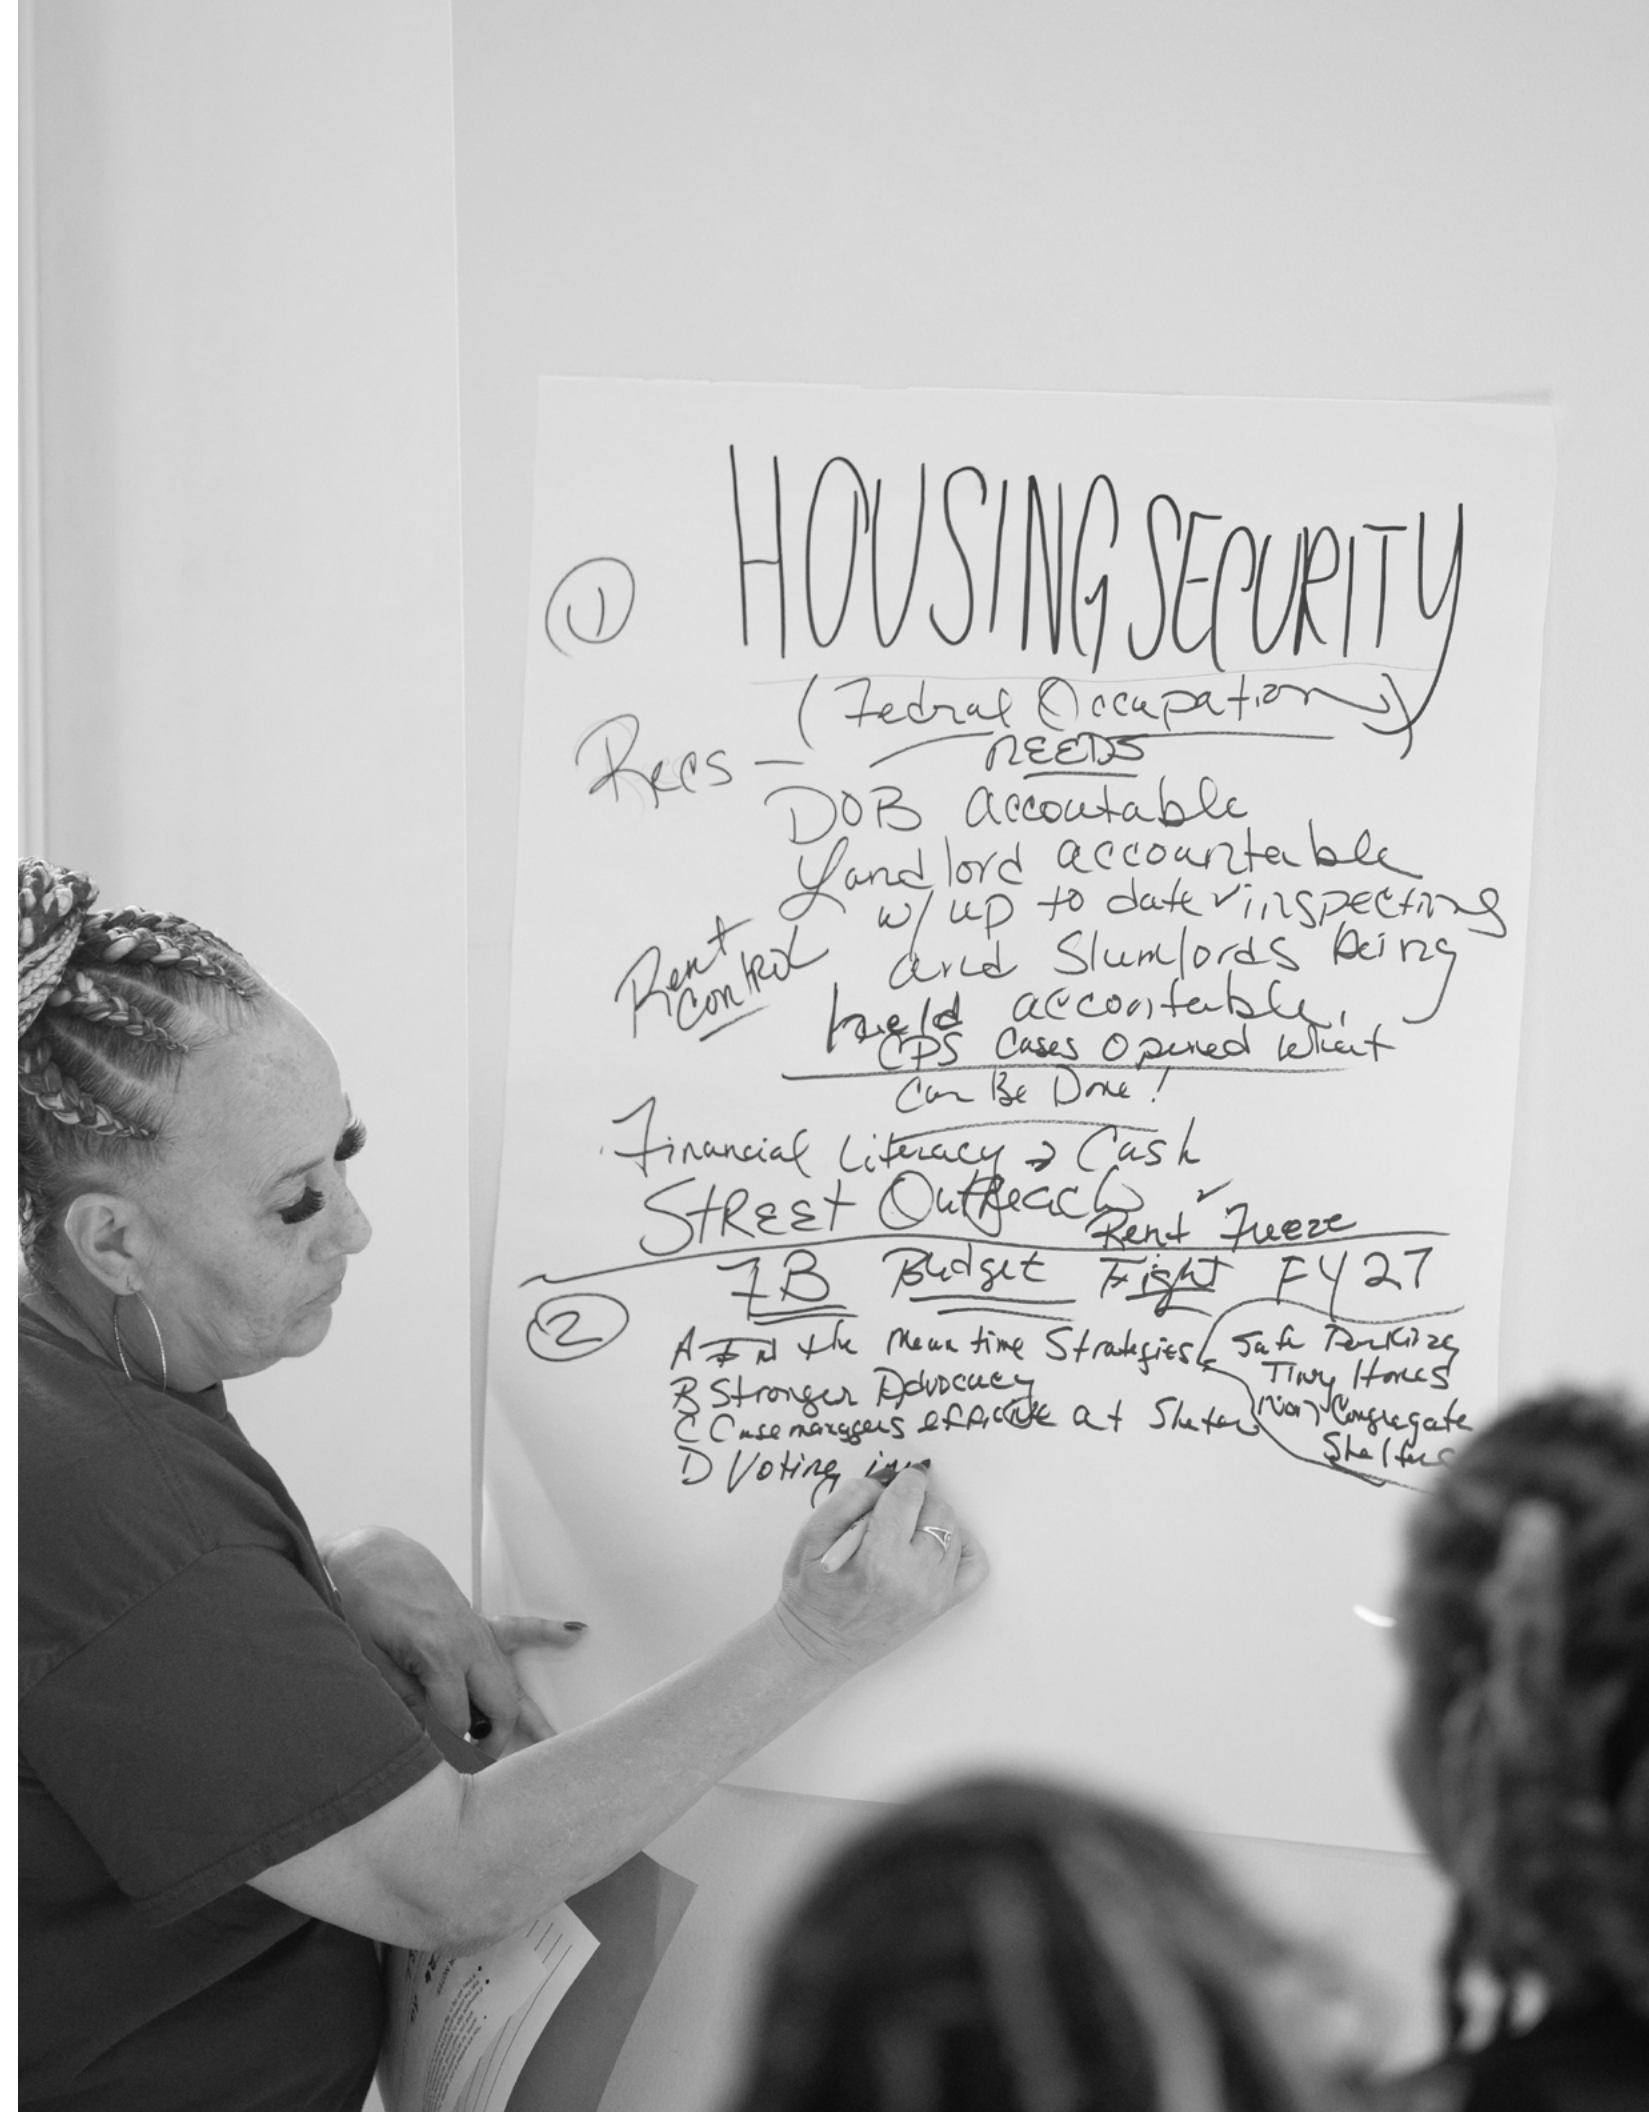 HOUSING SECURITY
①
(Federal Occupation)
Recs — NEEDS
DOB accoutable
Landlord accountable
w/ up to date ✓ inspecting
and Slumlords being
held accountable.
Rent
Control
CPS Cases Opened What
Can Be Done!
Financial Literacy → Cash
STREET OutReach ✓
Rent Freeze
②
Budget Fight FY27
A In the Mean time Strategies
B Stronger Advocacy
C Case managers effective at Shelter
D Voting
Safe Parking
Tiny Homes
Non Congregate
Shelters